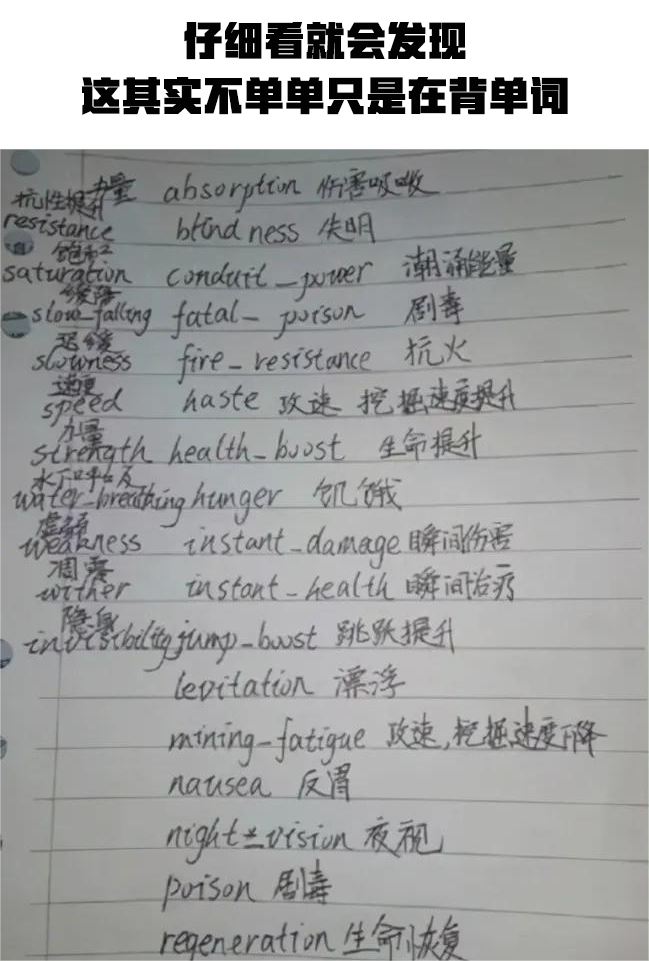 仔细看就会发现
这其实不单单只是在背单词
力量 absorption 伤害吸收
抗性提升
resistance blindness 失明
饱和
saturation conduit_power 潮涌能量
缓降
slow_falling fatal_poison 剧毒
迟缓
slowness fire_resistance 抗火
速度
speed haste 攻速 挖掘速度提升
力量
strength health_boost 生命提升
水下呼吸
water_breathing hunger 饥饿
虚弱
weakness instant_damage 瞬间伤害
凋零
wither instant_health 瞬间治疗
隐身
invisibility jump_boost 跳跃提升
levitation 漂浮
mining_fatigue 攻速,挖掘速度下降
nausea 反胃
night_vision 夜视
poison 剧毒
regeneration 生命恢复